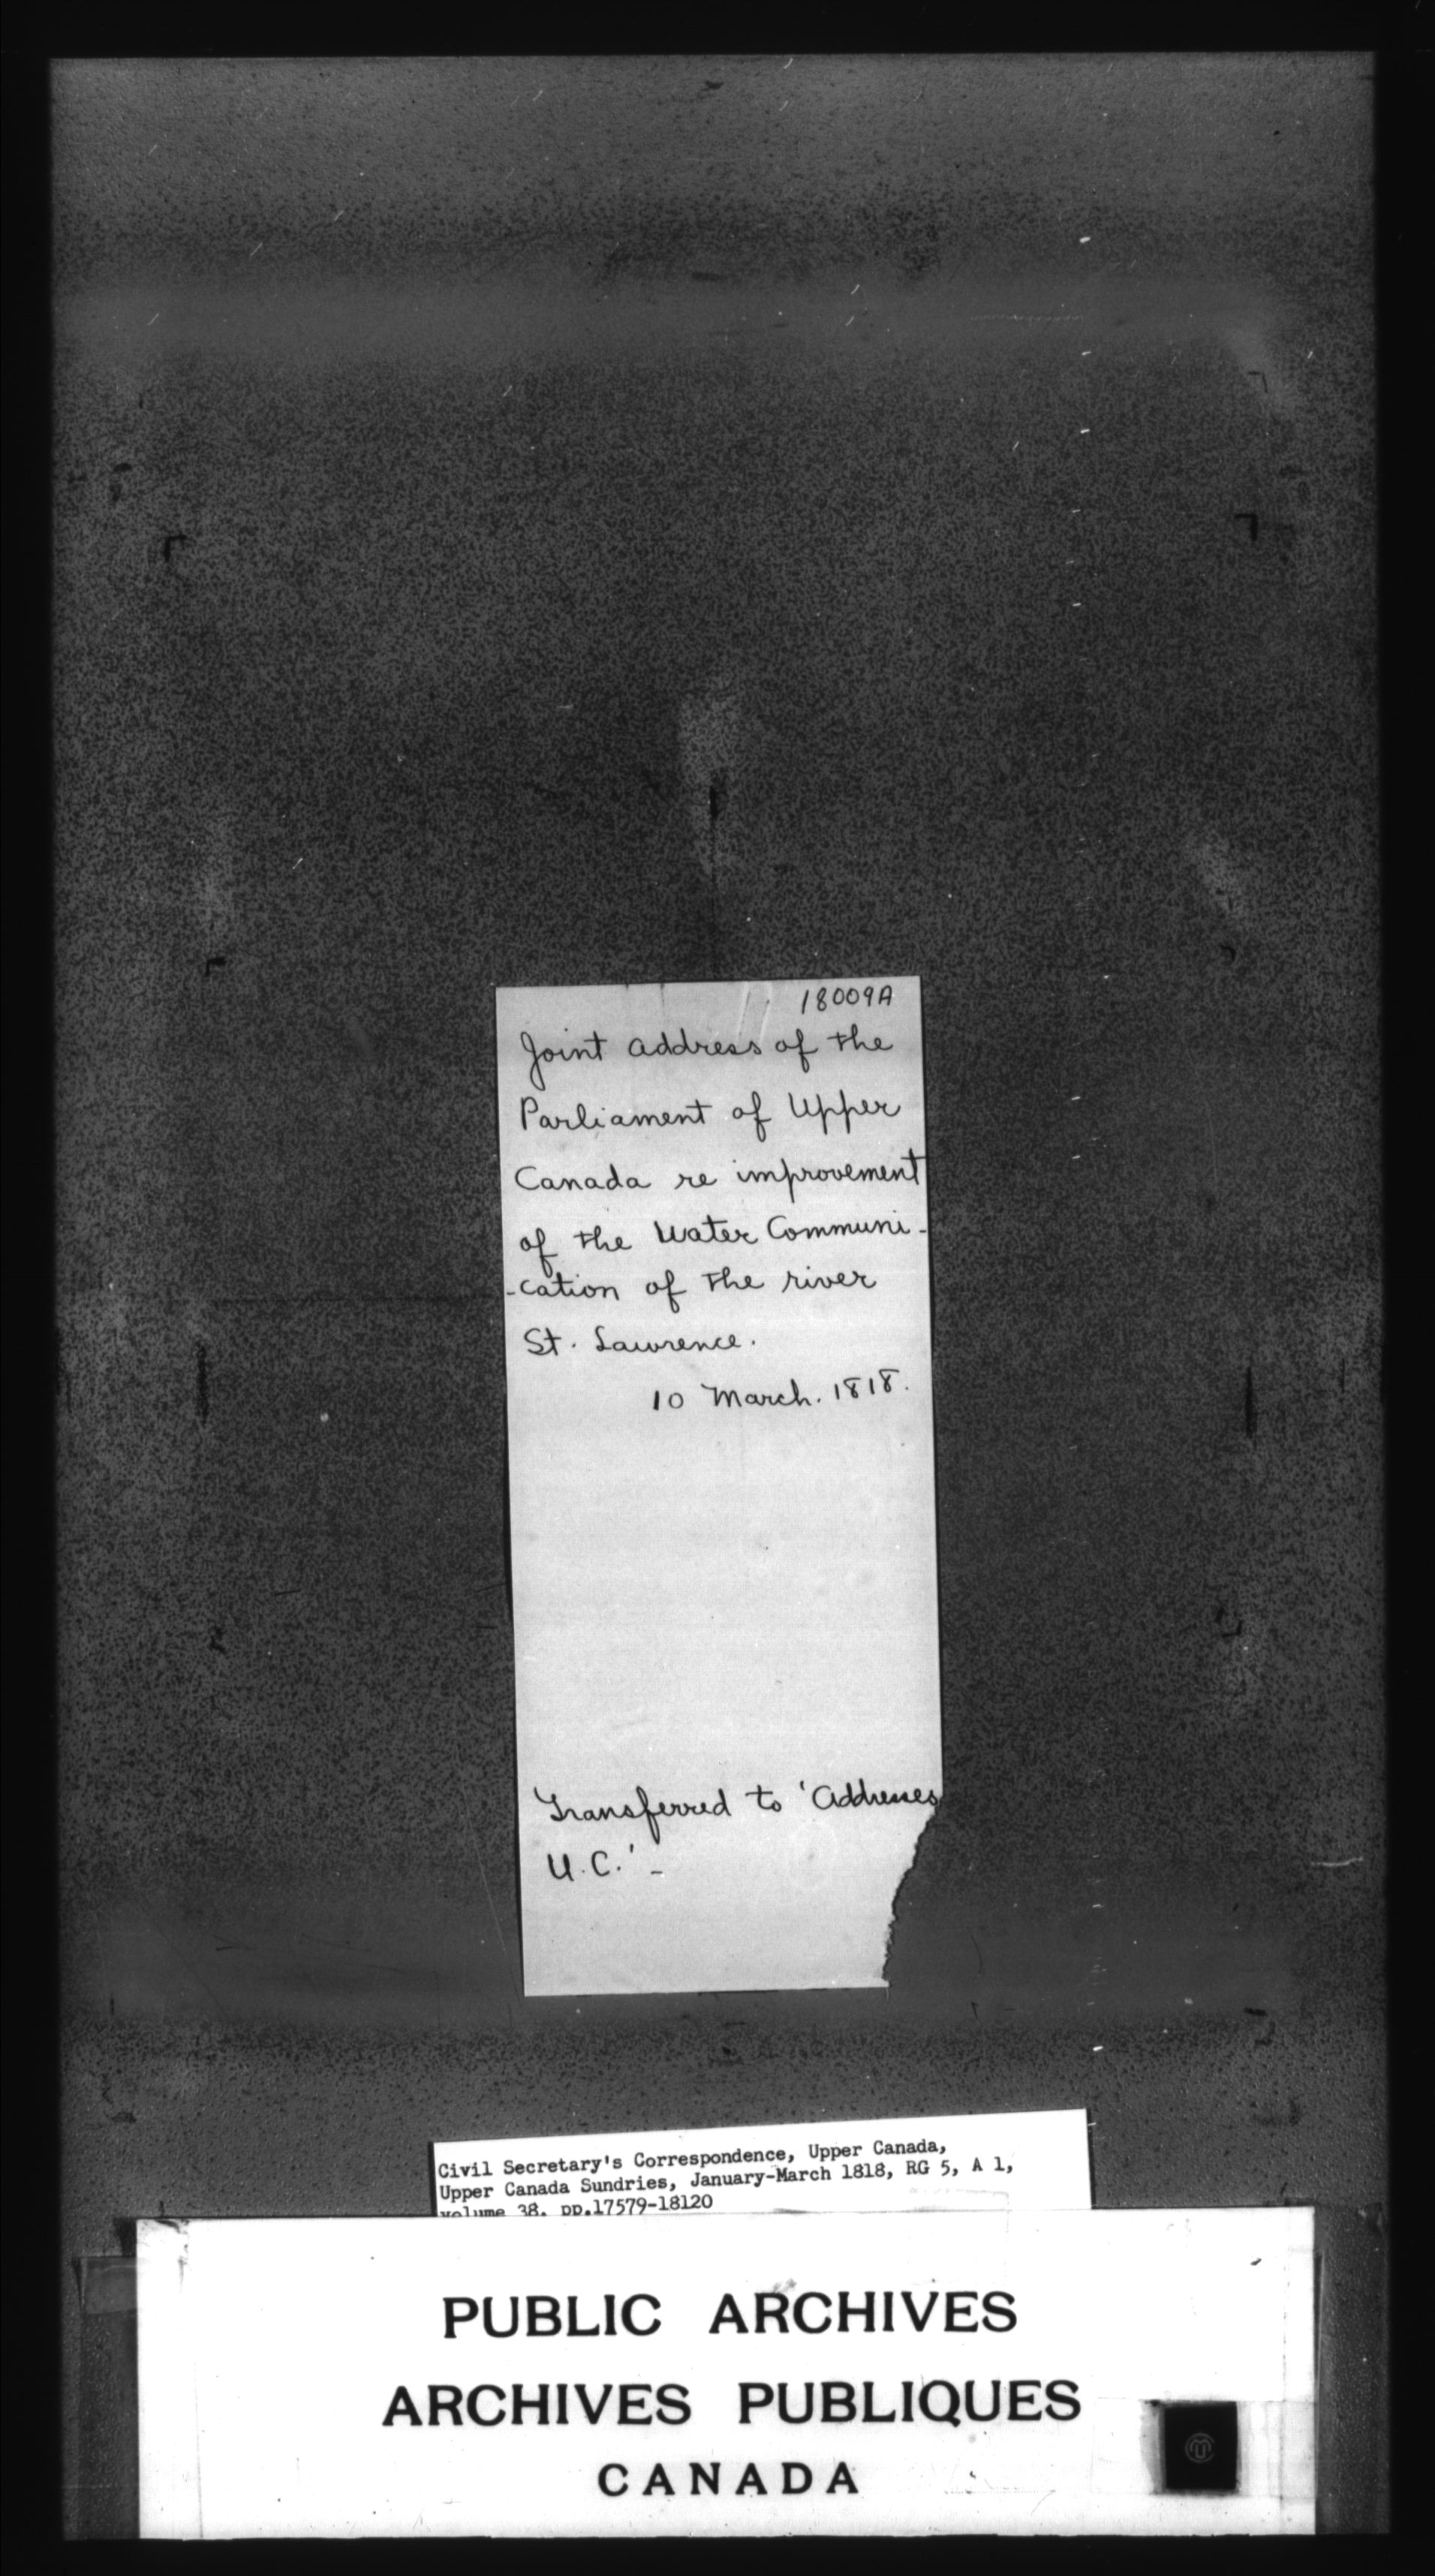 18009A
Joint Address of the
Parliament of Upper
Canada re improvement
of the Water Communi-
-cation of the river
St. Lawrence.
10 March. 1818.
Transferred to 'Addresses
U.C.' -
Civil Secretary's Correspondence, Upper Canada,
Upper Canada Sundries, January-March 1818, RG 5, A 1,
volume 38, pp.17579-18120
PUBLIC ARCHIVES
ARCHIVES PUBLIQUES
CANADA